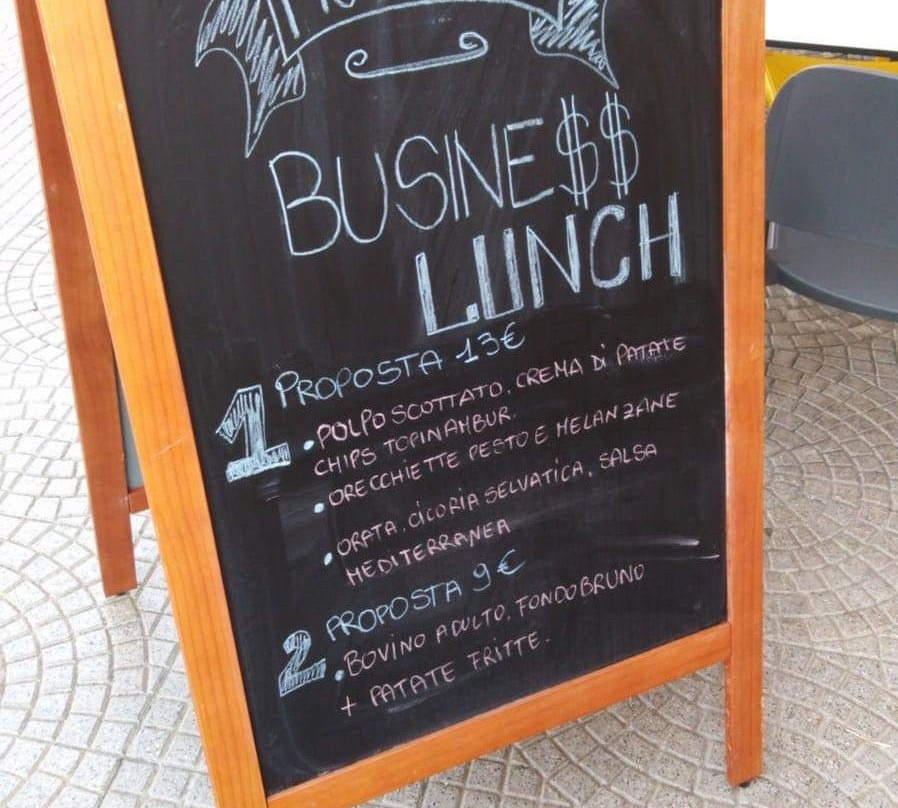 BUSINE$$
LUNCH
1 PROPOSTA 13€
• POLPO SCOTTATO, CREMA DI PATATE
CHIPS TOPINAMBUR.
• ORECCHIETTE PESTO E MELANZANE
• ORATA, CICORIA SELVATICA, SALSA
MEDITERRANEA
2 PROPOSTA 9€
• BOVINO ADULTO, FONDO BRUNO
+ PATATE FRITTE.